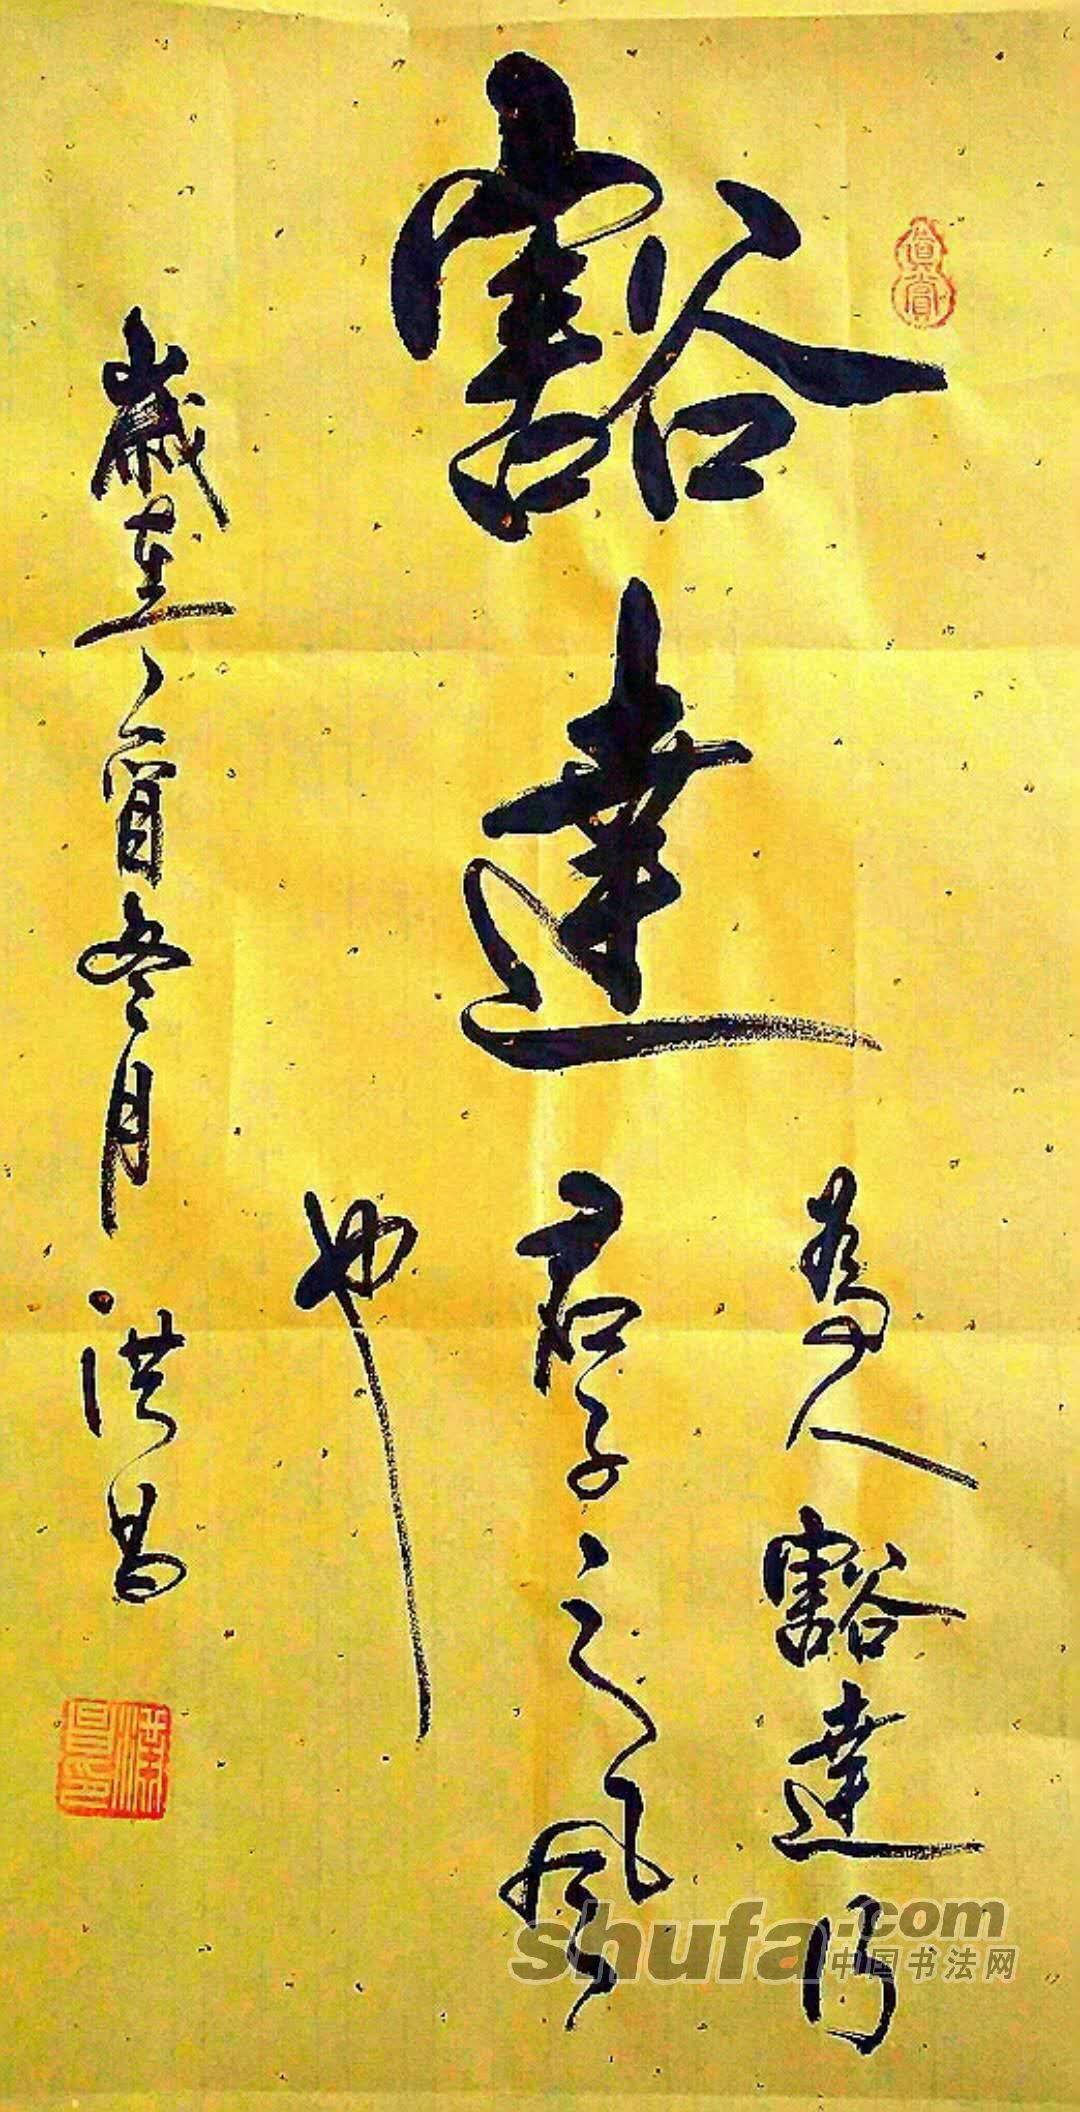 豁達
眞賞
為人豁達
君子之風
也
歲在寅冬月 洪昌
洪昌印
shufa.com
中国书法网